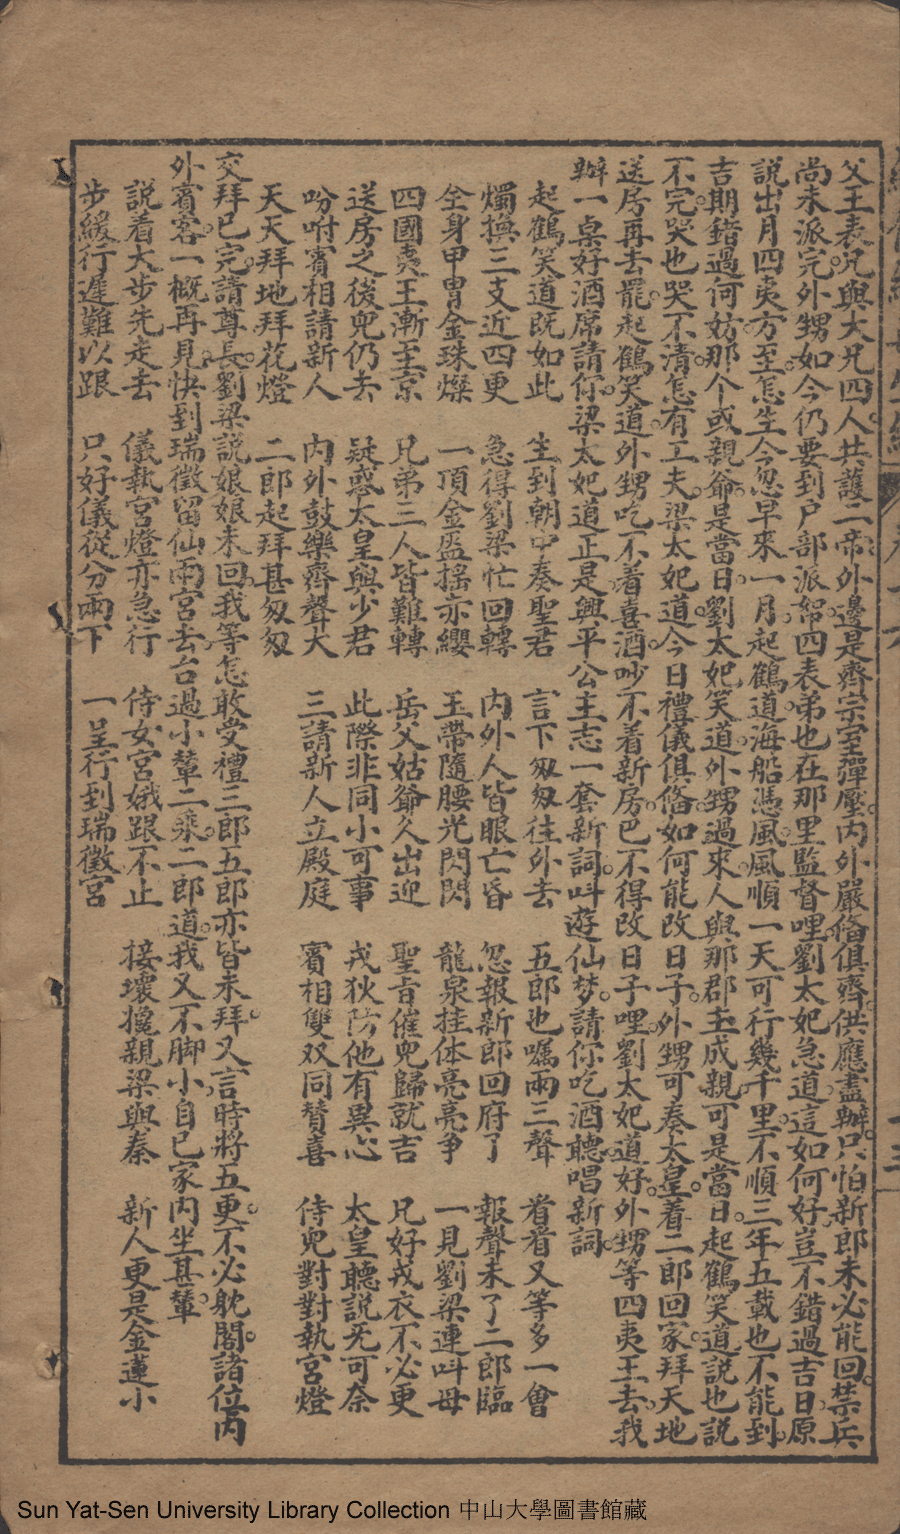 父王表兄與大兄四人共護二帝外邊是齊宗室彈壓內外嚴俻俱齊供應盡辦只怕新郎未必能回禁兵
尚未派完外甥如今仍要到户部派帑四表弟也在那里監督哩劉太妃急道這如何好豈不錯過吉日原
說出月四夷方至怎生今忽早來一月起鶴道海船憑風風順一天可行幾千里不順三年五載也不能到
吉期錯過何妨那个或親爺是當日劉太妃笑道外甥過來人與那郡主成親可是當日起鶴笑道說也説
不完哭也哭不清怎有工夫梁太妃道今日禮儀俱俻如何能改日子外甥可奏太皇着二郎回家拜天地
送房再去罷起鶴笑道外甥吃不着喜酒吵不着新房巴不得改日子哩劉太妃道好外甥等四夷王去我
辦一桌好酒席請你梁太妃道正是興平公主志一套新詞叫遊仙梦請你吃酒聽唱新詞
起鶴笑道既如此 生到朝中奏聖君 言下匆匆往外去 五郎也嘱兩三聲 着着又等多一會
燭換三支近四更 急得劉梁忙回轉 內外人皆眼亡昏 忽報新郎回府了 報聲未了二郎臨
全身甲冑金珠燦 一頂金盔搖赤纓 玉帶隨腰光閃閃 龍泉挂体亮亮爭 一見劉梁連叫母
四國夷王漸至京 兄弟三人皆難轉 岳父姑爺久出迎 聖旨催兒歸就吉 兄好戎衣不必更
送房之後兒仍去 疑惑太皇與少君 此際非同小可事 戎狄防他有異心 太皇聽説无可奈
吩咐賓相請新人 內外鼓樂齊聲大 三請新人立殿庭 賓相雙双同贊喜 侍兒對對執宮燈
天天拜地拜花燈 二郎起拜甚匆匆
交拜已完請尊長劉梁説娘娘未回我等怎敢受禮三郎五郎亦皆未拜又言時將五更不必躭閣諸位內
外賓客一概再見快到瑞徵留仙兩宮去台過小輦二乘二郎道我又不脚小自已家內坐甚輦
說着大步先走去 儀執宮燈亦急行 侍女宮娥跟不止 接壞攙親梁與秦 新人更是金蓮小
步緩行遲難以跟 只好儀從分兩下 一呈行到瑞徵宮
Sun Yat-Sen University Library Collection 中山大學圖書館藏